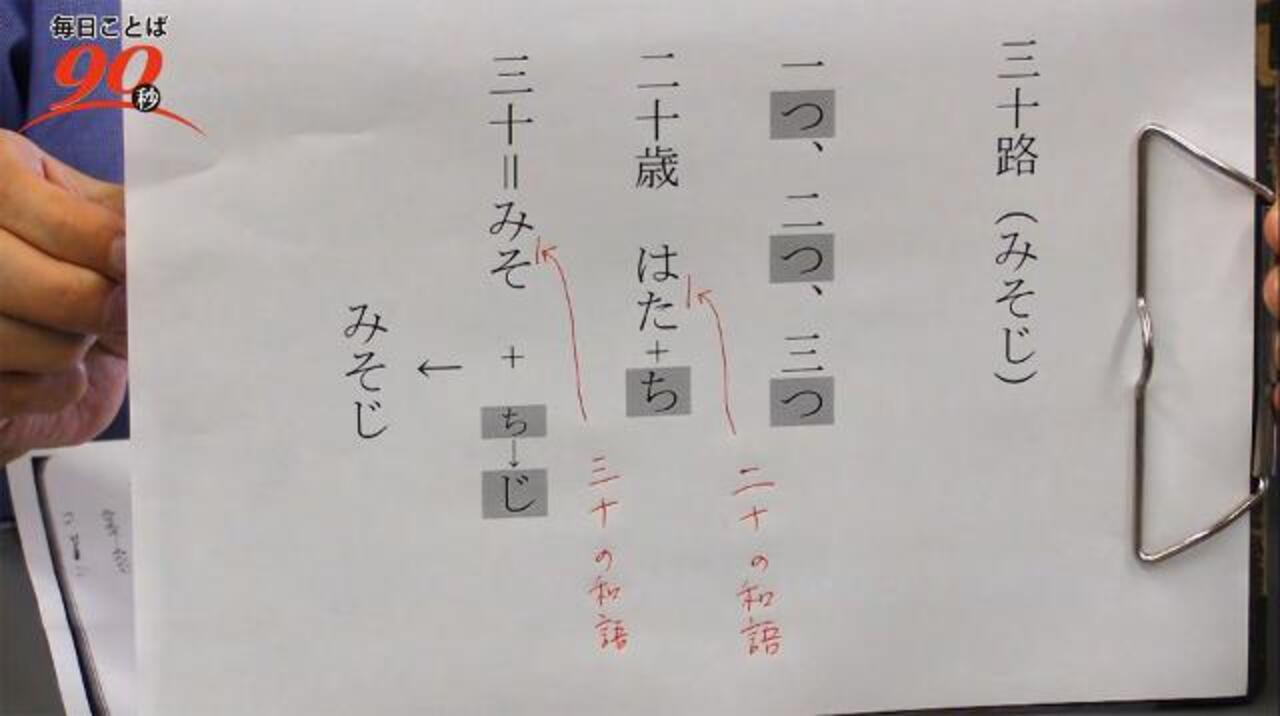 毎日ことば
90秒
三十路（みそじ）
一つ、二つ、三つ
二十歳　はた＋ち
二十の和語
三十＝みそ　＋　ち→じ
三十の和語
←
みそじ